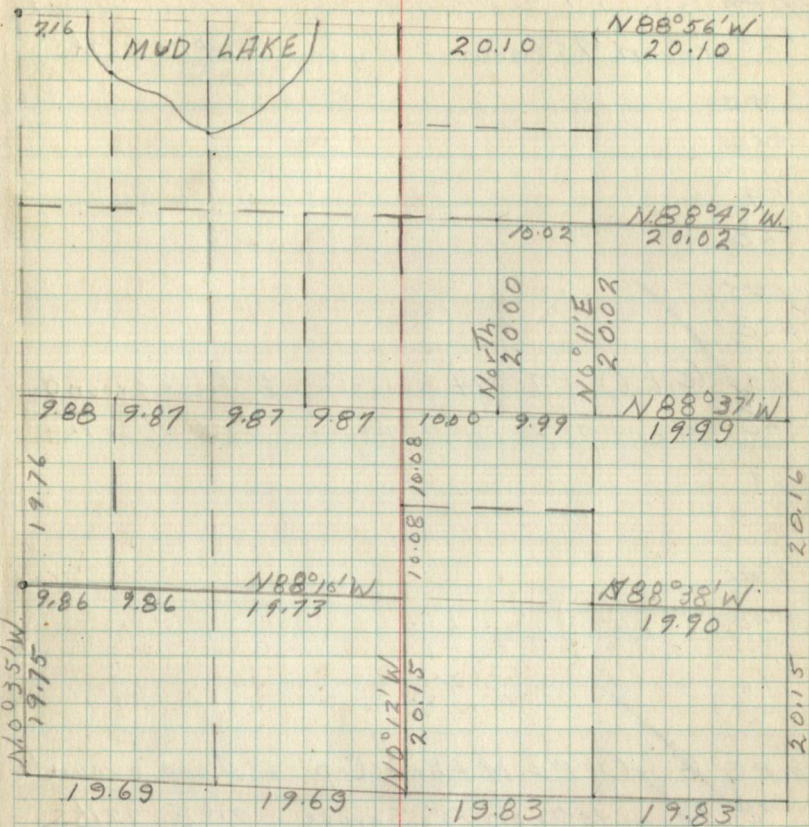 7.16
MUD LAKE
20.10
N88°56'W
20.10
10.02
N.88°47'W.
20.02
North
20.00
N0°11'E
20.02
9.88 9.87 9.87 9.87 10.00 9.99
N88°37'W
19.99
19.76
10.08
10.08
20.16
9.86 9.86
N88°16'W
19.73
N88°38'W
19.90
N.0°35'W.
19.75
N0°12'W
20.15
20.15
19.69 19.69 19.83 19.83